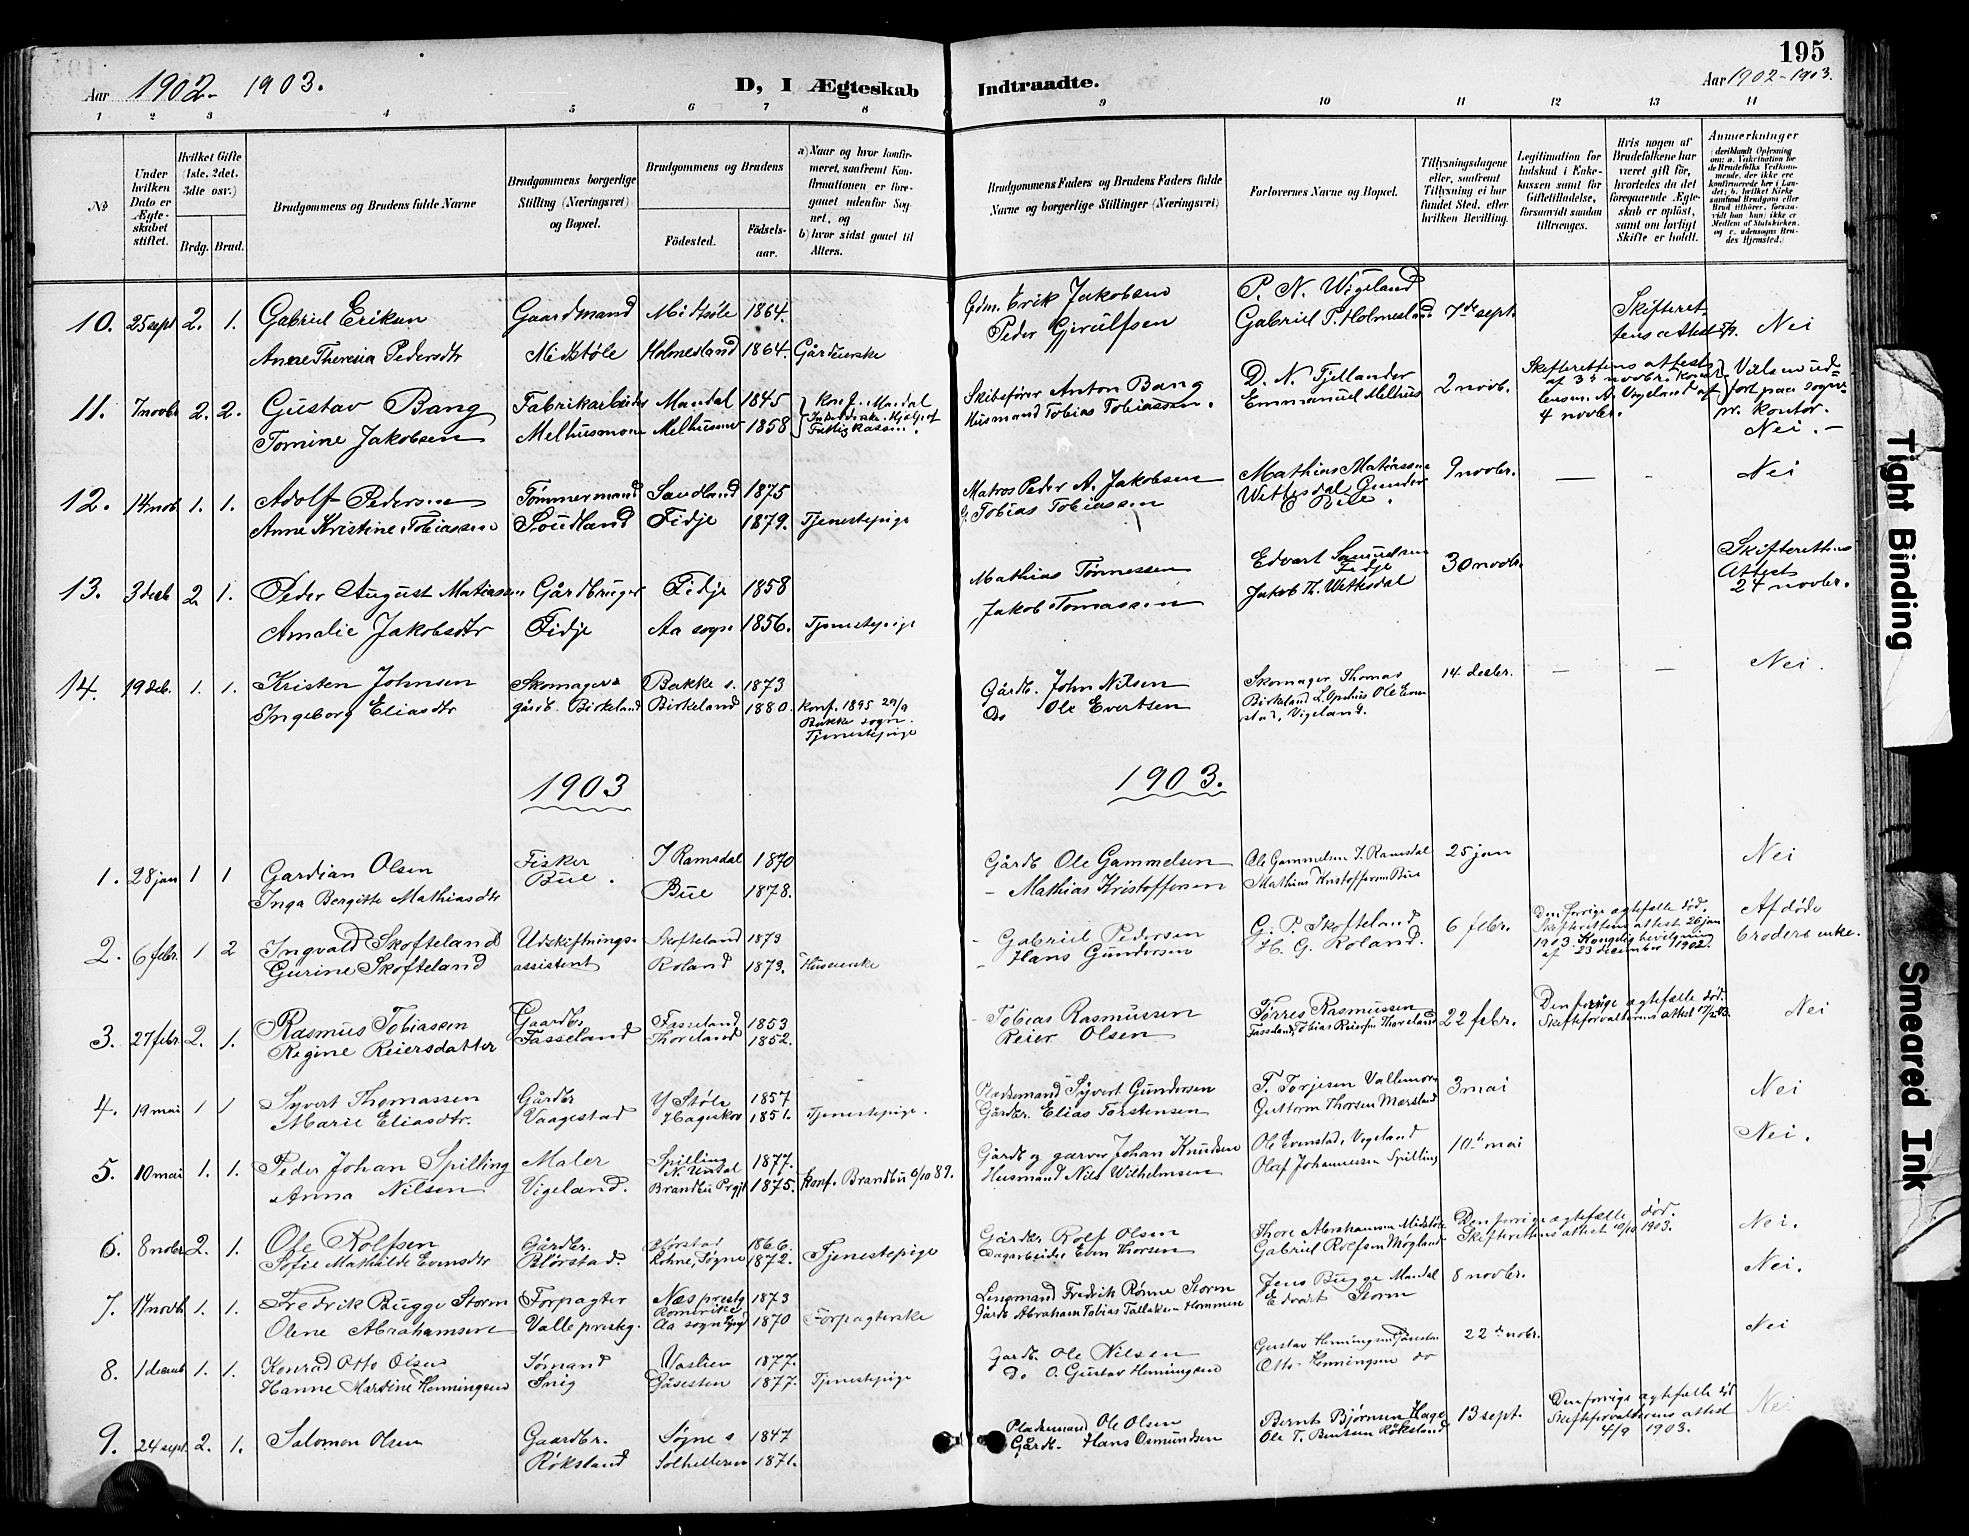 195
Aar 1902 - 1903.
D, I Ægteskab Indtraadte.
Aar 1902-1903.
1 2 3 4 5 6 7 8 9 10 11 12 13 14
No
Under hvilken Dato er Ægteskabet stiftet.
Hvilket Gifte (1ste, 2det, 3die osv.)
Brdg. Brud.
Brudgommens og Brudens fulde Navne
Brudgommens borgerlige Stilling (Næringsvei) og Bopæl.
Brudgommens og Brudens
Födested.
Födselsaar.
a) Naar og hvor konfirmeret, saafremt Konfirmationen er foregaaet udenfor Sognet, og
b) hvor sidst gaaet til Alters.
Brudgommens Faders og Brudens Faders fulde Navne og borgerlige Stillinger (Næringsvei)
Forlovernes Navne og Bopæl.
Tillysningsdagene eller, saafremt Tillysning ei har fundet Sted, efter hvilken Bevilling.
Legitimation for Indskud i Enkekassen samt for Giftetilladelse, forsaavidt saadan tiltrænges.
Hvis nogen af Brudefolkene har været gift før, hvorledes da det foregaaende Ægteskab er opløst, samt om lovligt Skifte er holdt.
Anmerkninger
10. 25 sept 2. 1. Gabriel Eriksen Gaardmand Midtsöle 1864. Gdm. Erik Jakobsen P. N. Vigeland 7de sept. Skifteret Nei
Anne Theresia Pedersdtr Midtstöle Holmesland 1864. Gårdenske Peder Gjerulfsen Gabriel P. Holmesland
11. 7 novbr 2. 2. Gustav Bang Fabrikarbeider Mandal 1845 Konf. Mandal Skibsfører Anton Bang D. N. Fjellander 2 novb. Skifterettens attest af 3. novbr.
Tomine Jakobsen Melhusmoen 1858 Husmand Tobias Tobiassen. Emmanuel Melhus A. Vigeland af 4 novbr. kontor. Nei. -
12. 14 nob 1. 1. Adolf Pedersen Tömmermand Saudland 1875 Matros Peder A. Jakobsen 9 novbr. — - Nei
Anne Kristine Tobiassen Soudland Fidje 1879. Tjenestepige G. Tobias Tobiassen
13. 3 desb 2 1. Peder August Matiassen Gårdbruger Fidje 1858 Mathias Tönnessen Edvart Samuelsen Fidje 30 novbr. Skifterettens Attest 24 novbr.
Amalie Jakobsdtr Fidje Aa sogn 1856. Tjenestepige Jakob Tomassen
14. 19 deb. 1. 1. Kristen Johnsen Skomager & Bakke s. 1873 Gårdb. John Nilsen Skomager Thomas 14 desbr. — — Nei.
Ingeborg Eliasdtr gårdb. Birkeland Birkeland 1880. Konf. 1895 29/9 Do Ole Evertsen Birkeland
Bakke sogn. Tjenestepige Vigeland.
1903 1903.
1. 28 jan 1 1 Gardian Olsen Fisker I Ramsdal 1870 Gårdb Ole Gammelsen Ole Gammelsen I. Ramsdal 25 jan Nei
Inga Bergitte Mathiasdtr Bue. Bue 1878. - Mathias Kristoffersen Mathias Kristoffersen Bue
2. 6 febr. 1 2 Ingvald Skofteland Udskiftnings- Skofteland 1879 - Gabriel Pedersen G. P. Skofteland 6 febr. Den forrige ægtefælle död. Afdöde
Gurine Skofteland assistent Roland 1879. Huseierske - Hans Gundersen H. G. Roland. Skifterettens attest 26 jan 1903. Kongelig bevilgning af 23 december 1902. broders enke.
3. 27 febr. 2. 1. Rasmus Tobiassen Gaardb. Fasseland 1853 - Tobias Rasmussen Tørres Rasmussen 22 febr. Den forrige ægtefælle död. Nei
Regine Reiersdatter Fasseland Thoreland 1852. Reier Olsen Fasseland, Tobias Reiersen Thoreland Skifteforvalterens attest
4. 19 mai 1 1 Syvert Thomassen Gårdbr Y Støle 1857 Pladsemand Syvert Gundersen T. Torjesen Vallemoen 3 mai Nei
Marie Eliasdtr. Vaagestad Hageskov 1851. Tjenestepige. Gårdbr. Elias Torstensen Guttorm Thorsen Mørsland
5. 10 mai 1. 1. Peder Johan Spilling Maler Spilling N. Undal 1877. Gårdb og garver Johan Knudsen Ole Evenstad, Vigeland 10de mai Nei.
Anna Nilsen Vigeland. Brandbu Prgj 1875. Konf. Brandbu 6/10 89. Husmand Nils Wilhelmsen Olaf Johannessen Spilling
6. 8 nobr 2. 1. Ole Rolfsen Gårdbr. Blörstad 1866. Gårdbr. Rolf Olsen Thore Abrahamsen Midtsöle Den forrige ægtefælle död. Nei.
Sofie Mathilde Evensdtr Blörstad. Rohne, Søgne 1872. Tjenestepige Dagarbeider Even Thorsen Gabriel Rolfsen Møgland Skifterettens attest 10/10 1903.
7. 17 novb 1. 1. Fredrik Bugge Storm Forpagter Næs prestg Romerike 1873 Lensmand Fredrik Rønne Storm Jens Bugge Mandal 8 novbr. Nei.
Olene Abrahamsen Valle preskg. Aa sogn 1870 Forpagterske Gårdb Abraham Tobias Tallaksen Hommen Edvart Storm
8. 1 decemb 1. 1. Konrad Otto Olsen Sømand Vaslien 1877. Gårdb. Ole Nilsen Gustav Henningsen Gåsesten 22de nobr. Nei
Hanne Martine Henningsen Snig Gåsesten 1877. Tjenestepige Do O. Gustav Henningsen Otto Henningsen do
9. 24 sept. 2. 1. Salomon Olsen Gaardbr. Søgne s 1847 Pladsemand, Ole Olsen Bernt Bjørnsen Hage 13 sept. Den forrige ægtefælle död Nei
Röksland 1871. Gårdb. Hans Osmundsen Ole T. Bentsen Röksland Skifteforvalterens attest 4/9 1903.
Tight Binding
Smeared Ink